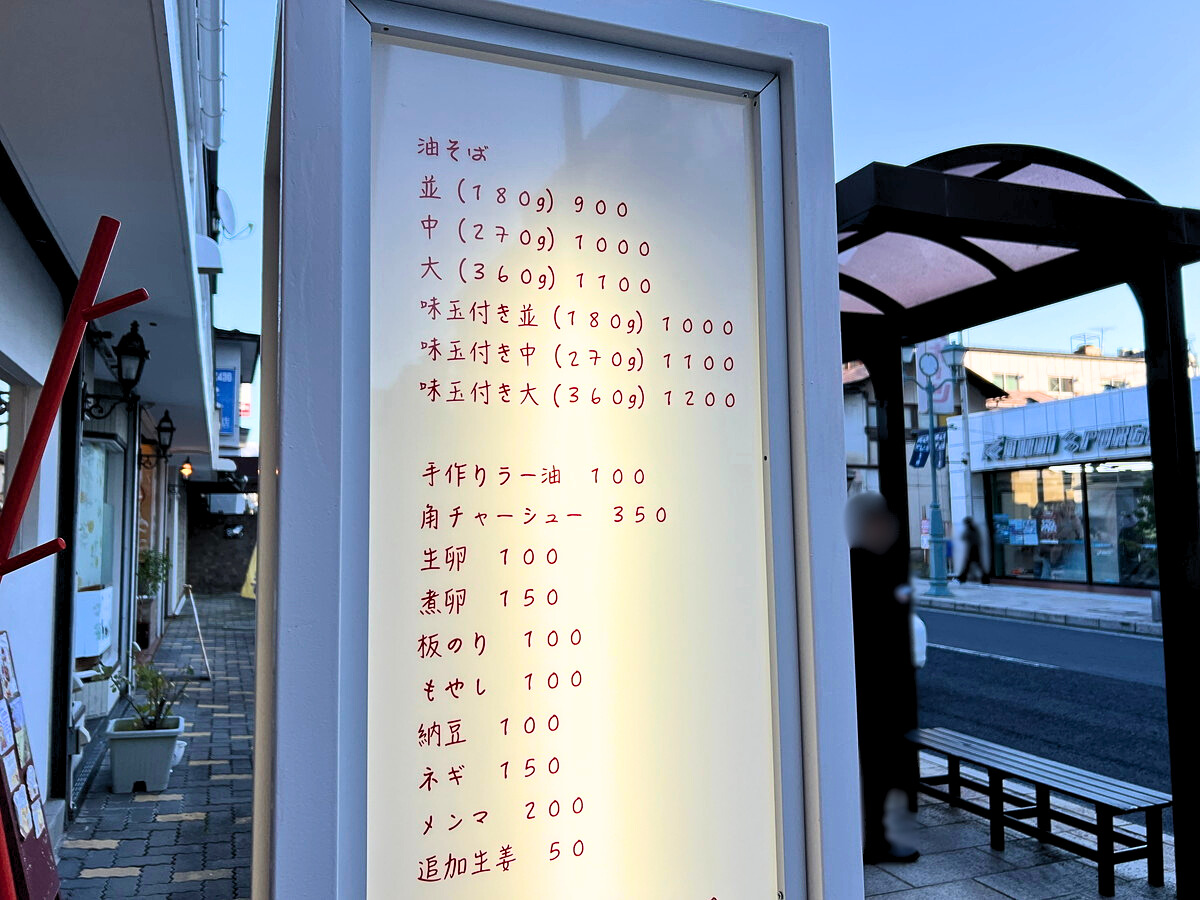 油そば
並 (180g) 900
中 (270g) 1000
大 (360g) 1100
味玉付き並 (180g) 1000
味玉付き中 (270g) 1100
味玉付き大 (360g) 1200
手作りラー油 100
角チャーシュー 350
生卵 100
煮卵 150
板のり 100
もやし 100
納豆 100
ネギ 150
メンマ 200
追加生姜 50